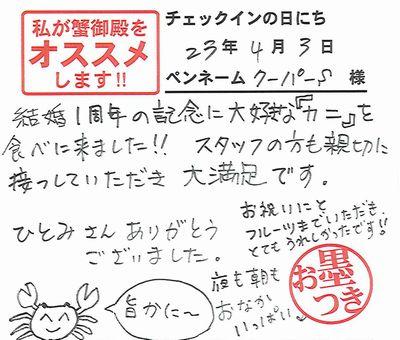 私が蟹御殿を
オススメ
します!!
チェックインの日にち
23年4月3日
ペンネーム クーパーS 様
結婚1周年の記念に大好きな『カニ』を
食べに来ました!! スタッフの方も親切に
接っしていただき 大満足です。
ひとみさん ありがとう
ございました。
お祝いにと
フルーツまでいただき、
とてもうれしかったです!!
お墨つき
旨かに〜
夜も朝も
おなか
いっぱい